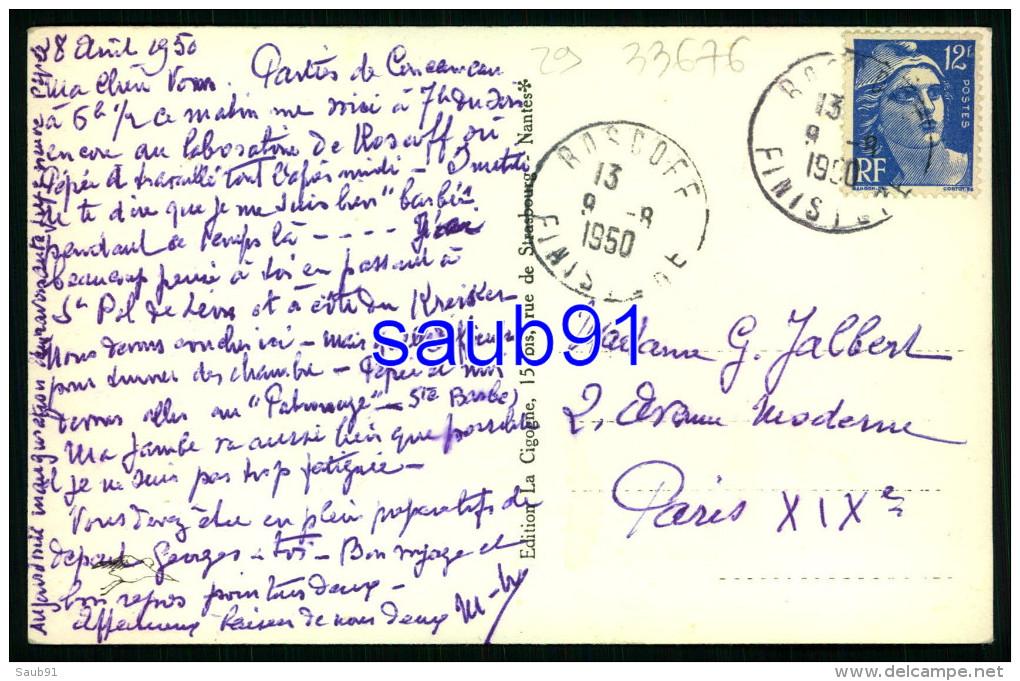 8 Août 1950
Ma chère Vonn. Parties de Concarneau
à 6h 1/2 ce matin me voici à 7h du soir
encore au laboratoire de Roscoff où
Pépée a travaillé tout l'après midi - Inutile
de te dire que je me suis bien "barbée"
pendant ce temps là - - - -
beaucoup pensé à toi en passant à
St Pol de Léon et à côté du Kreisker
Nous devons coucher ici - mais
pour trouver des chambre - Pépée et moi
devons aller au "Patronage" - Ste Barbe)
Ma jambe va aussi bien que possible
et je ne suis pas trop fatiguée -
Vous devez être en plein préparatifs de
départ Georges et toi - Bon voyage et
bon repos pour tous deux -
Affectueux baisers de nous deux
29 33676
12F
POSTES
RF
ROSCOFF
13
9 -8
1950
FINISTERE
ROSCOFF
13
9 -8
1950
FINISTERE
Edition La Cigogne, 15 bis, rue de Strasbourg, Nantes
Madame G. Jalbert
2, Avenue Moderne
Paris XIXe
saub91
Saub91
delcampe.net